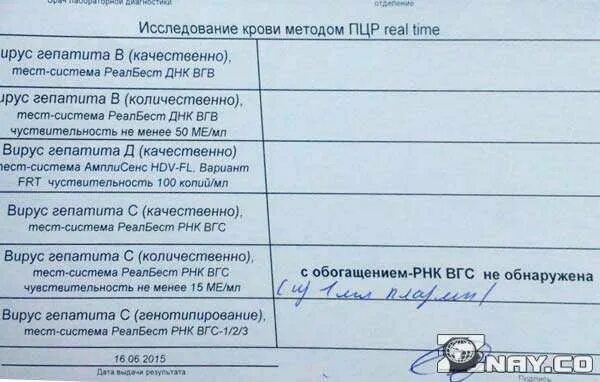 Врач лабораторной диагностики отделение
Исследование крови методом ПЦР real time
ирус гепатита В (качественно),
тест-система РеалБест ДНК ВГВ
ирус гепатита В (количественно),
тест-система РеалБест ДНК ВГВ
чуствительность не менее 50 МЕ/мл
Вирус гепатита Д (качественно)
тест-система АмплиСенс HDV-FL, Вариант
FRT чуствительность 100 копий/мл
Вирус гепатита С (качественно),
тест-система РеалБест РНК ВГС
Вирус гепатита С (количественно),
тест-система РеалБест РНК ВГС
чувствительность не менее 15 МЕ/мл
с обогащением-РНК ВГС не обнаружена
(из 1 мл плазмы)
Вирус гепатита С (генотипирование),
тест-система РеалБест РНК ВГС-1/2/3
16.06.2015
Дата выдачи результата
Подпись
ZNAY.CO